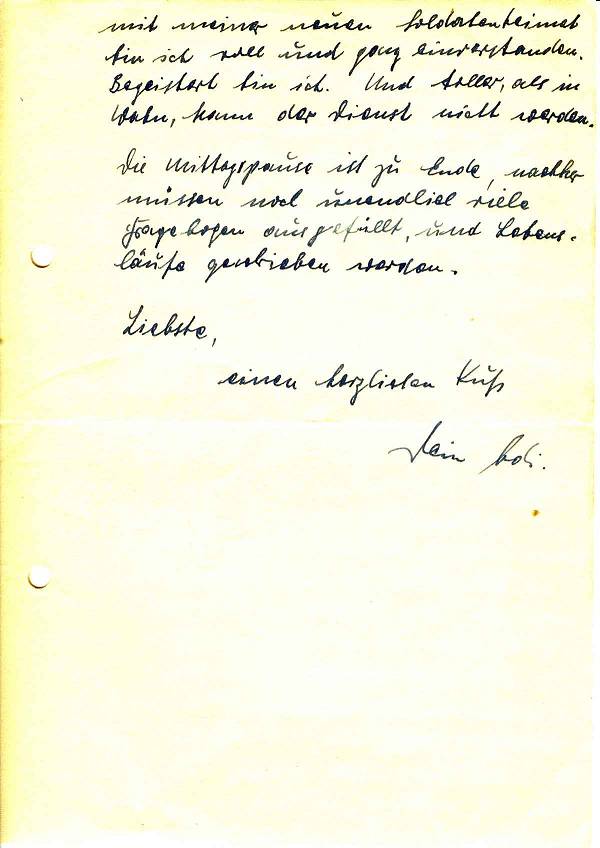 mit meiner neuen Soldatenheimat
bin ich voll und ganz einverstanden.
Begeistert bin ich. Und toller, als in
Wahn, kann der Dienst nicht werden.
Die Mittagspause ist zu Ende, nachher
müssen noch unendlich viele
Fragebogen ausgefüllt, und Lebens-
läufe geschrieben werden.
Liebste,
einen herzlichen Kuß
Dein